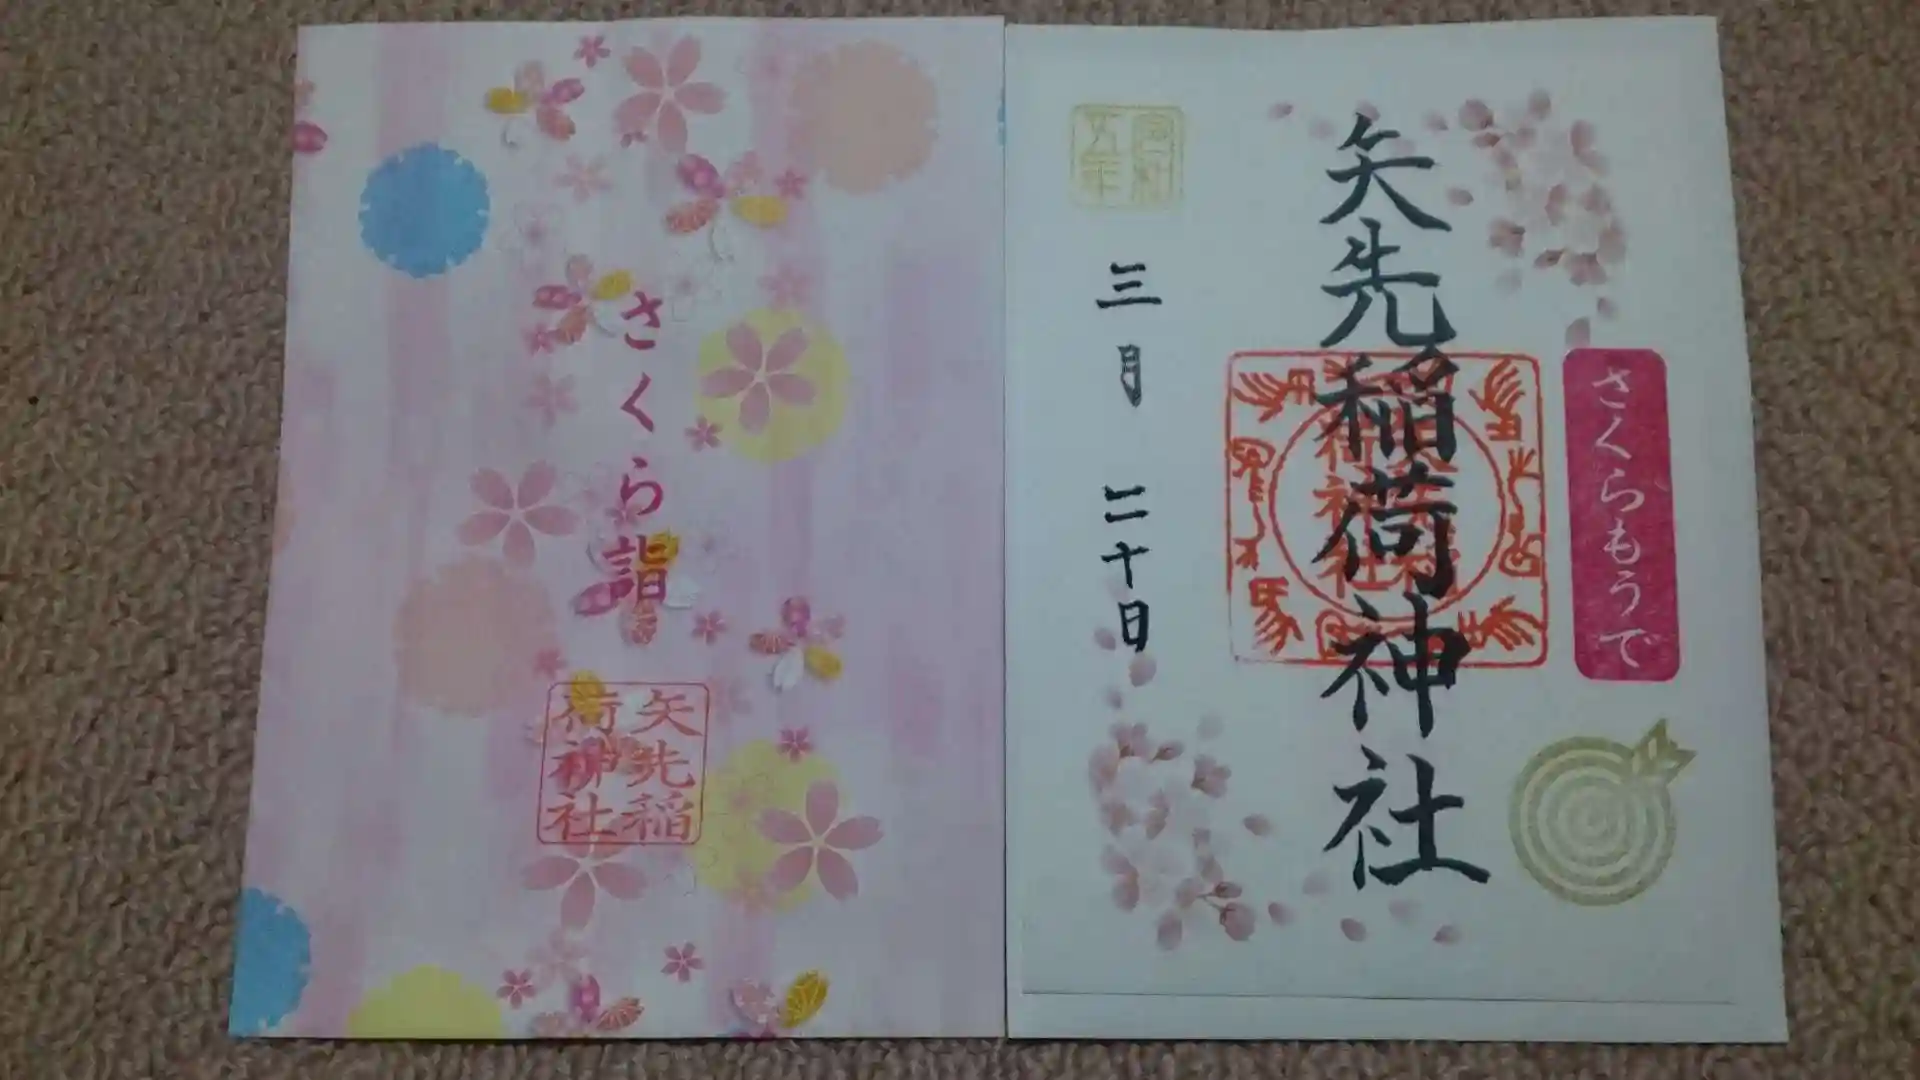 さくら詣
矢先稲
荷神社
さくらもうで
矢先稲荷神社
三月二十日